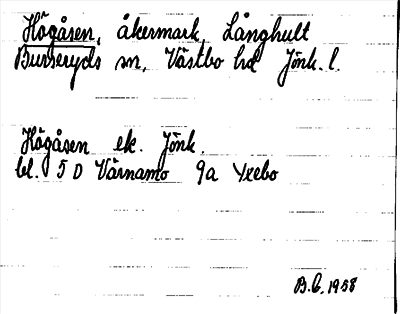 Högåsen, åkermark, Långhult
Burseryds sn, Västbo hd Jönk. l.
Högåsen ek. Jönk.
bl. 5 D Värnamo 9a Yxebo
B.C. 1958